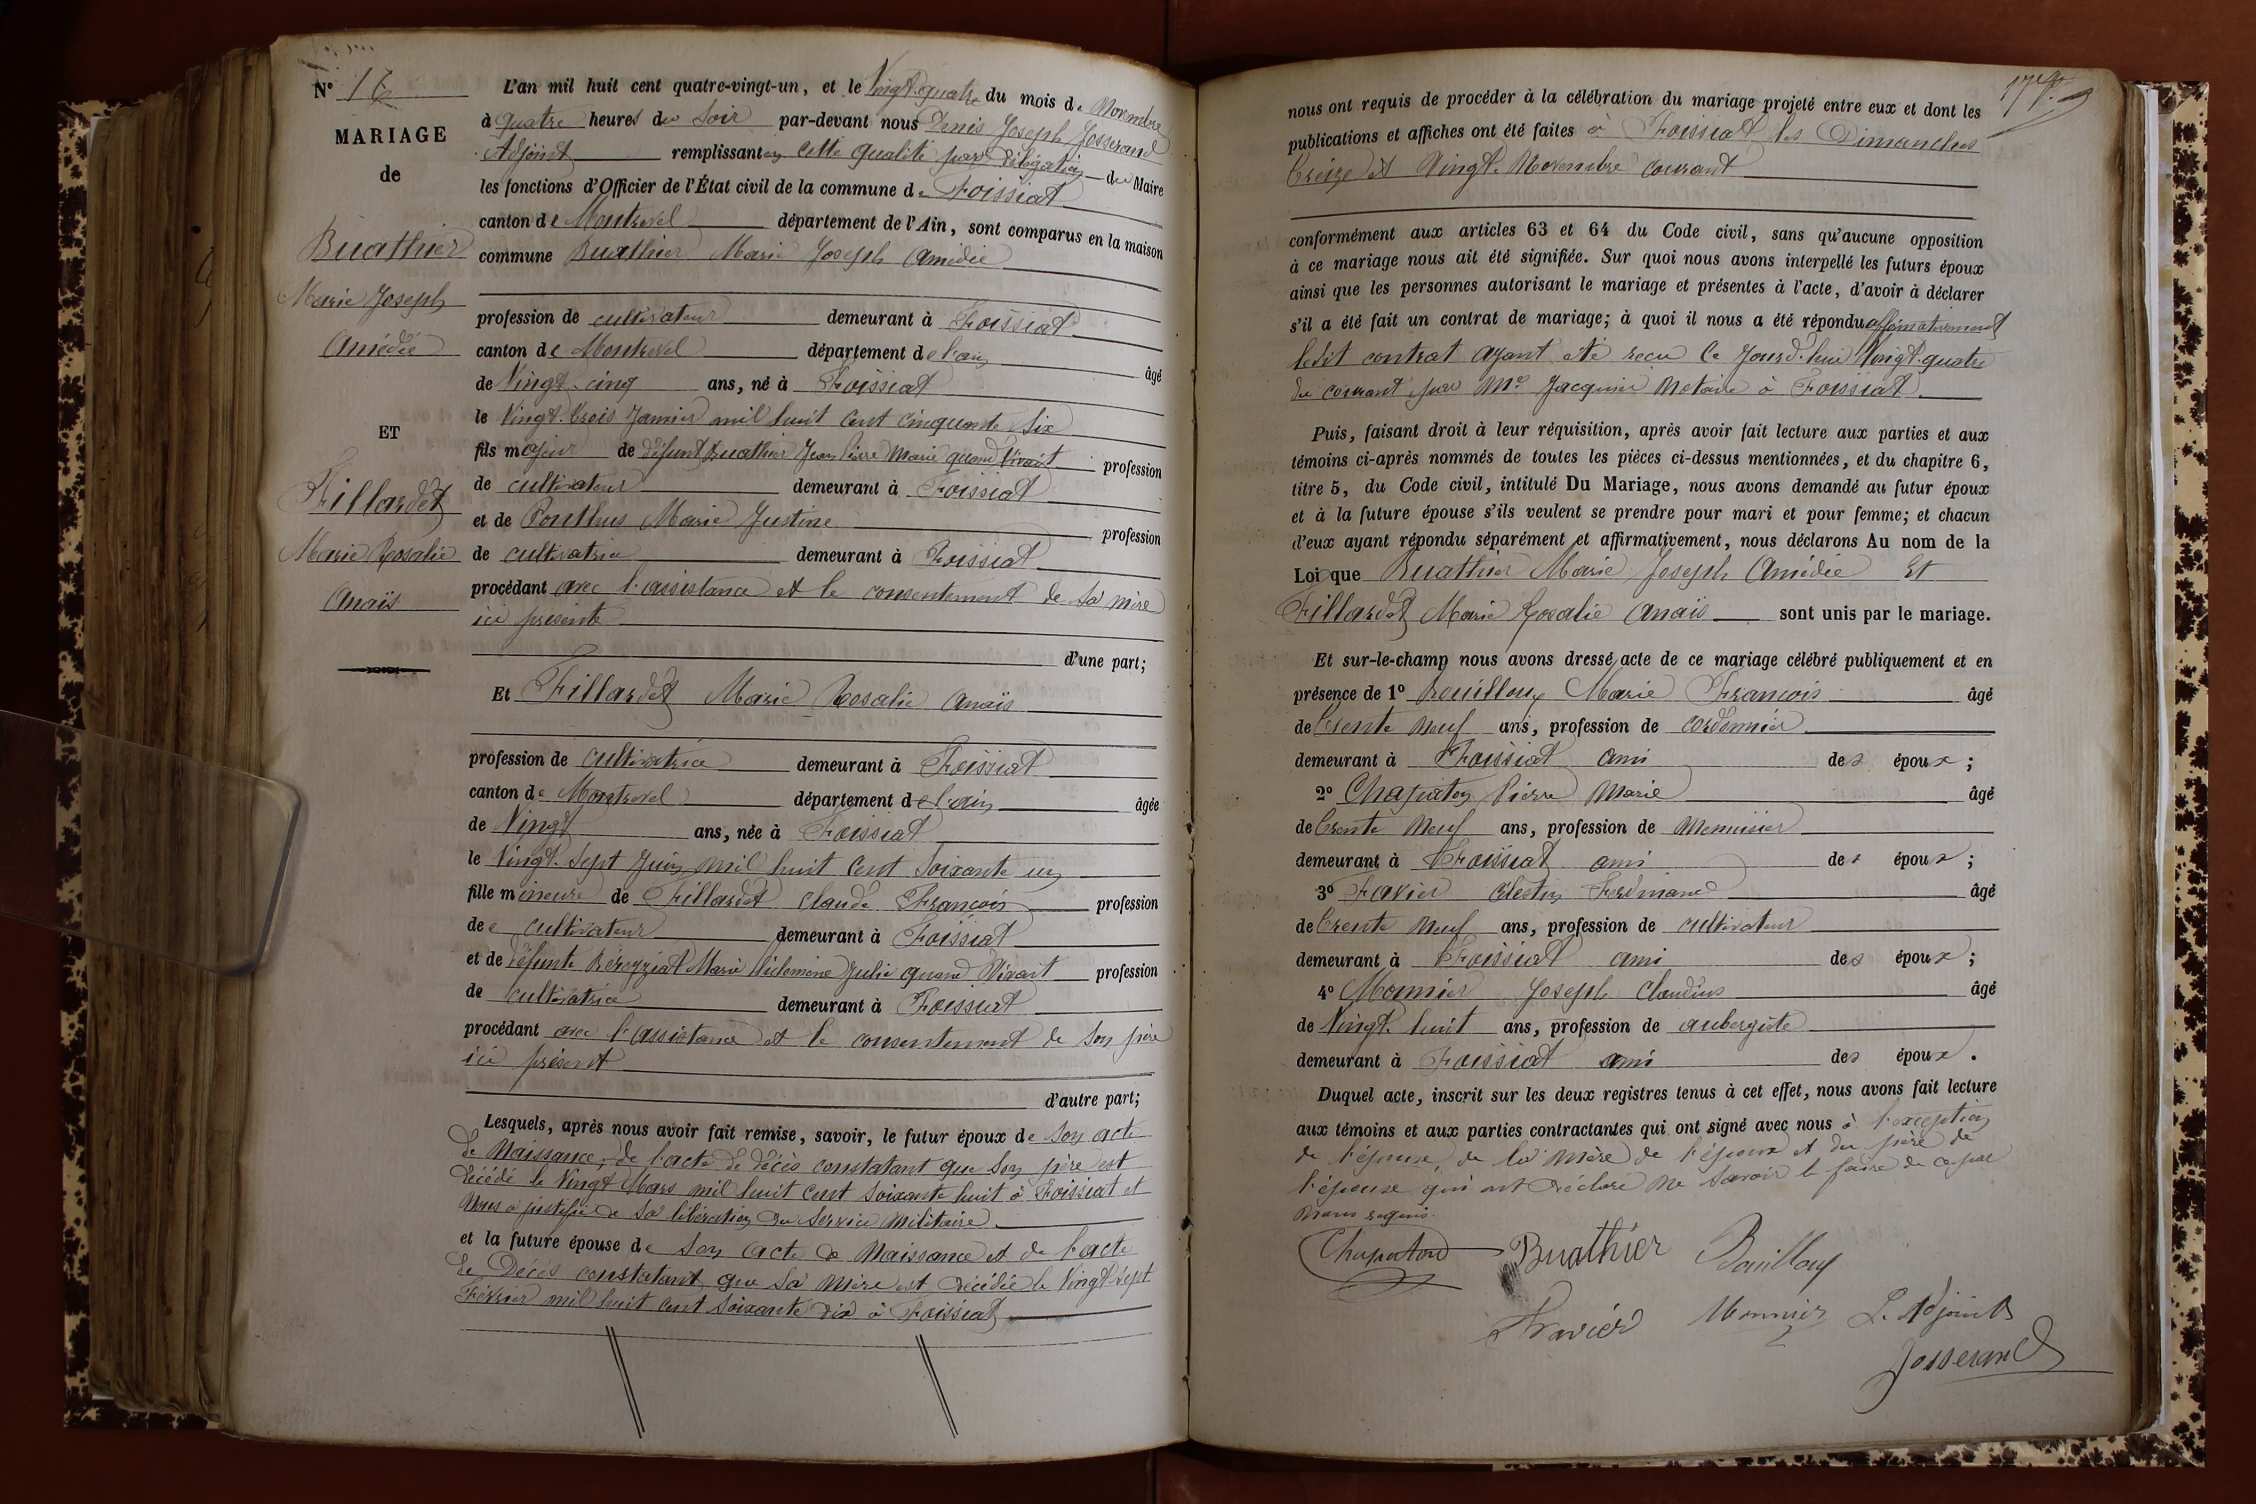 N° 16
MARIAGE
de
Buathier
Marie Joseph
Amédée
ET
Fillardet
Marie Rosalie
Anaïs
L'an mil huit cent quatre-vingt-un, et le Vingt quatre du mois de Novembre
à quatre heures du Soir par-devant nous Denis Joseph Josserand
Adjoint remplissant en cette qualité par délégation du Maire
les fonctions d'Officier de l'État civil de la commune de Foissiat
canton de Montrevel département de l'Ain, sont comparus en la maison
commune Buathier Marie Joseph Amédée
profession de cultivateur demeurant à Foissiat
canton de Montrevel département de l'ain âgé
de Vingt-cinq ans, né à Foissiat
le Vingt-trois Janvier mil huit cent cinquante six
fils majeur de défunt Buathier Jean Pierre Marie quand vivait profession
de cultivateur demeurant à Foissiat
et de Ponthus Marie Justine profession
de cultivatrice demeurant à Foissiat
procédant avec l'assistance et le consentement de sa mère
ici présente
d'une part;
Et Fillardet Marie Rosalie Anaïs
profession de cultivatrice demeurant à Foissiat
canton de Montrevel département de l'ain âgée
de Vingt ans, née à Foissiat
le Vingt-Sept Juin mil huit cent Soixante un
fille mineure de Fillardet Claude François profession
de cultivateur demeurant à Foissiat
et de défunte Béreyziat Marie Philomène Julie quand Vivait profession
de cultivatrice demeurant à Foissiat
procédant avec l'assistance et le consentement de son père
ici présent
d'autre part;
Lesquels, après nous avoir fait remise, savoir, le futur époux de son acte
de Naissance, de l'acte de décès constatant que son père est
décédé le Vingt Mars mil huit cent soixante huit à Foissiat et
nous a justifié de sa libération du Service militaire.
et la future épouse de son acte de Naissance et de l'acte
de Décès constatant que sa mère est décédée le Vingt-sept
Février mil huit cent soixante dix à Foissiat
nous ont requis de procéder à la célébration du mariage projeté entre eux et dont les
publications et affiches ont été faites à Foissiat les Dimanches
treize et Vingt Novembre courant
conformément aux articles 63 et 64 du Code civil, sans qu'aucune opposition
à ce mariage nous ait été signifiée. Sur quoi nous avons interpellé les futurs époux
ainsi que les personnes autorisant le mariage et présentes à l'acte, d'avoir à déclarer
s'il a été fait un contrat de mariage; à quoi il nous a été répondu affirmativement
ledit contrat ayant été reçu ce Jourd'hui Vingt-quatre
du courant par Me Jacquier Notaire à Foissiat.
Puis, faisant droit à leur réquisition, après avoir fait lecture aux parties et aux
témoins ci-après nommés de toutes les pièces ci-dessus mentionnées, et du chapitre 6,
titre 5, du Code civil, intitulé Du Mariage, nous avons demandé au futur époux
et à la future épouse s'ils veulent se prendre pour mari et pour femme; et chacun
d'eux ayant répondu séparément et affirmativement, nous déclarons Au nom de la
Loi que Buathier Marie Joseph Amédée Et
Fillardet Marie Rosalie Anaïs sont unis par le mariage.
Et sur-le-champ nous avons dressé acte de ce mariage célébré publiquement et en
présence de 1° Bouilloux Marie François âgé
de trente neuf ans, profession de cordonnier
demeurant à Foissiat ami des époux;
2° Chapaton Pierre Marie âgé
de trente Neuf ans, profession de Menuisier
demeurant à Foissiat ami des époux;
3° Favier Célestin Ferdinand âgé
de trente Neuf ans, profession de cultivateur
demeurant à Foissiat ami des époux;
4° Monnier Joseph Claudius âgé
de Vingt-huit ans, profession de aubergiste
demeurant à Foissiat ami des époux.
Duquel acte, inscrit sur les deux registres tenus à cet effet, nous avons fait lecture
aux témoins et aux parties contractantes qui ont signé avec nous à l'exception
de l'épouse, de la mère de l'époux et du père de
l'épouse qui ont déclaré ne savoir le faire de ce par
Nous requis.
Chapaton Buathier Bouilloux
Favier Monnier L. Adjoint
Josserand